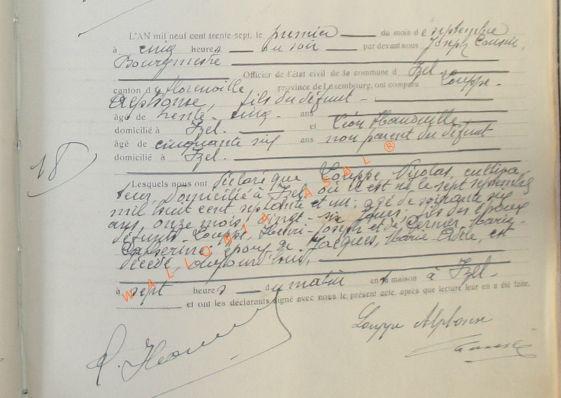 L'AN mil neuf cent trente-sept, le premier du mois de septembre
à cinq heures du soir par devant nous Joseph
Bourgmestre
Officier de l'état civil de la commune d'Izel
canton de Florenville, province de Luxembourg, ont comparu Louppe
Alphonse, fils du défunt
âgé de trente-cinq ans
domicilié à Izel. et Léon
âgé de cinquante six ans non parent du défunt
domicilié à Izel.
18
Lesquels nous ont déclaré que Louppe, Nicolas, cultiva
teur, domicilié à Izel où il est né le sept septembre
mil huit cent septante et un; âgé de soixante six
ans, onze mois, vingt-six jours, fils des époux
défunts Louppe, Henri-Joseph et de Marie-
Catherine; époux de Jacques, Marie est
décédé aujourd'hui,
à sept heures du matin en sa maison à Izel.
et ont les déclarants signé avec nous le présent acte, après que lecture leur en a été faite.
Louppe Alphonse
WALLONIA ASBL ®